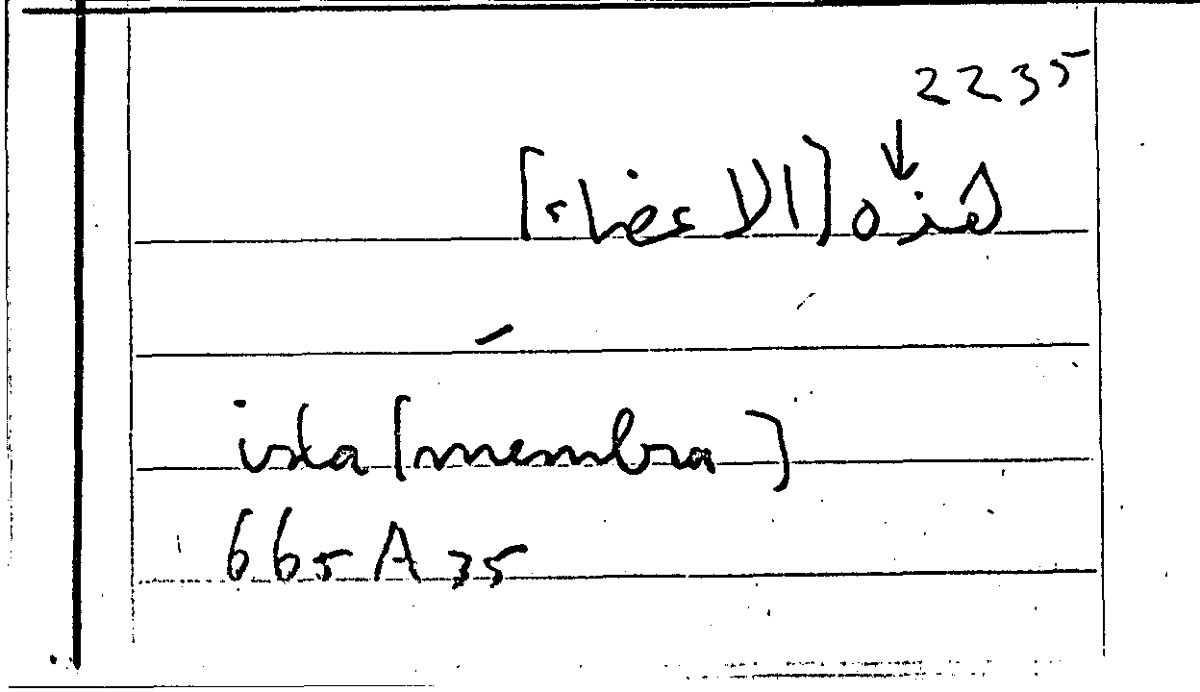 2235
↓
هذه [الاعضاء]
ista [membra]
665A35